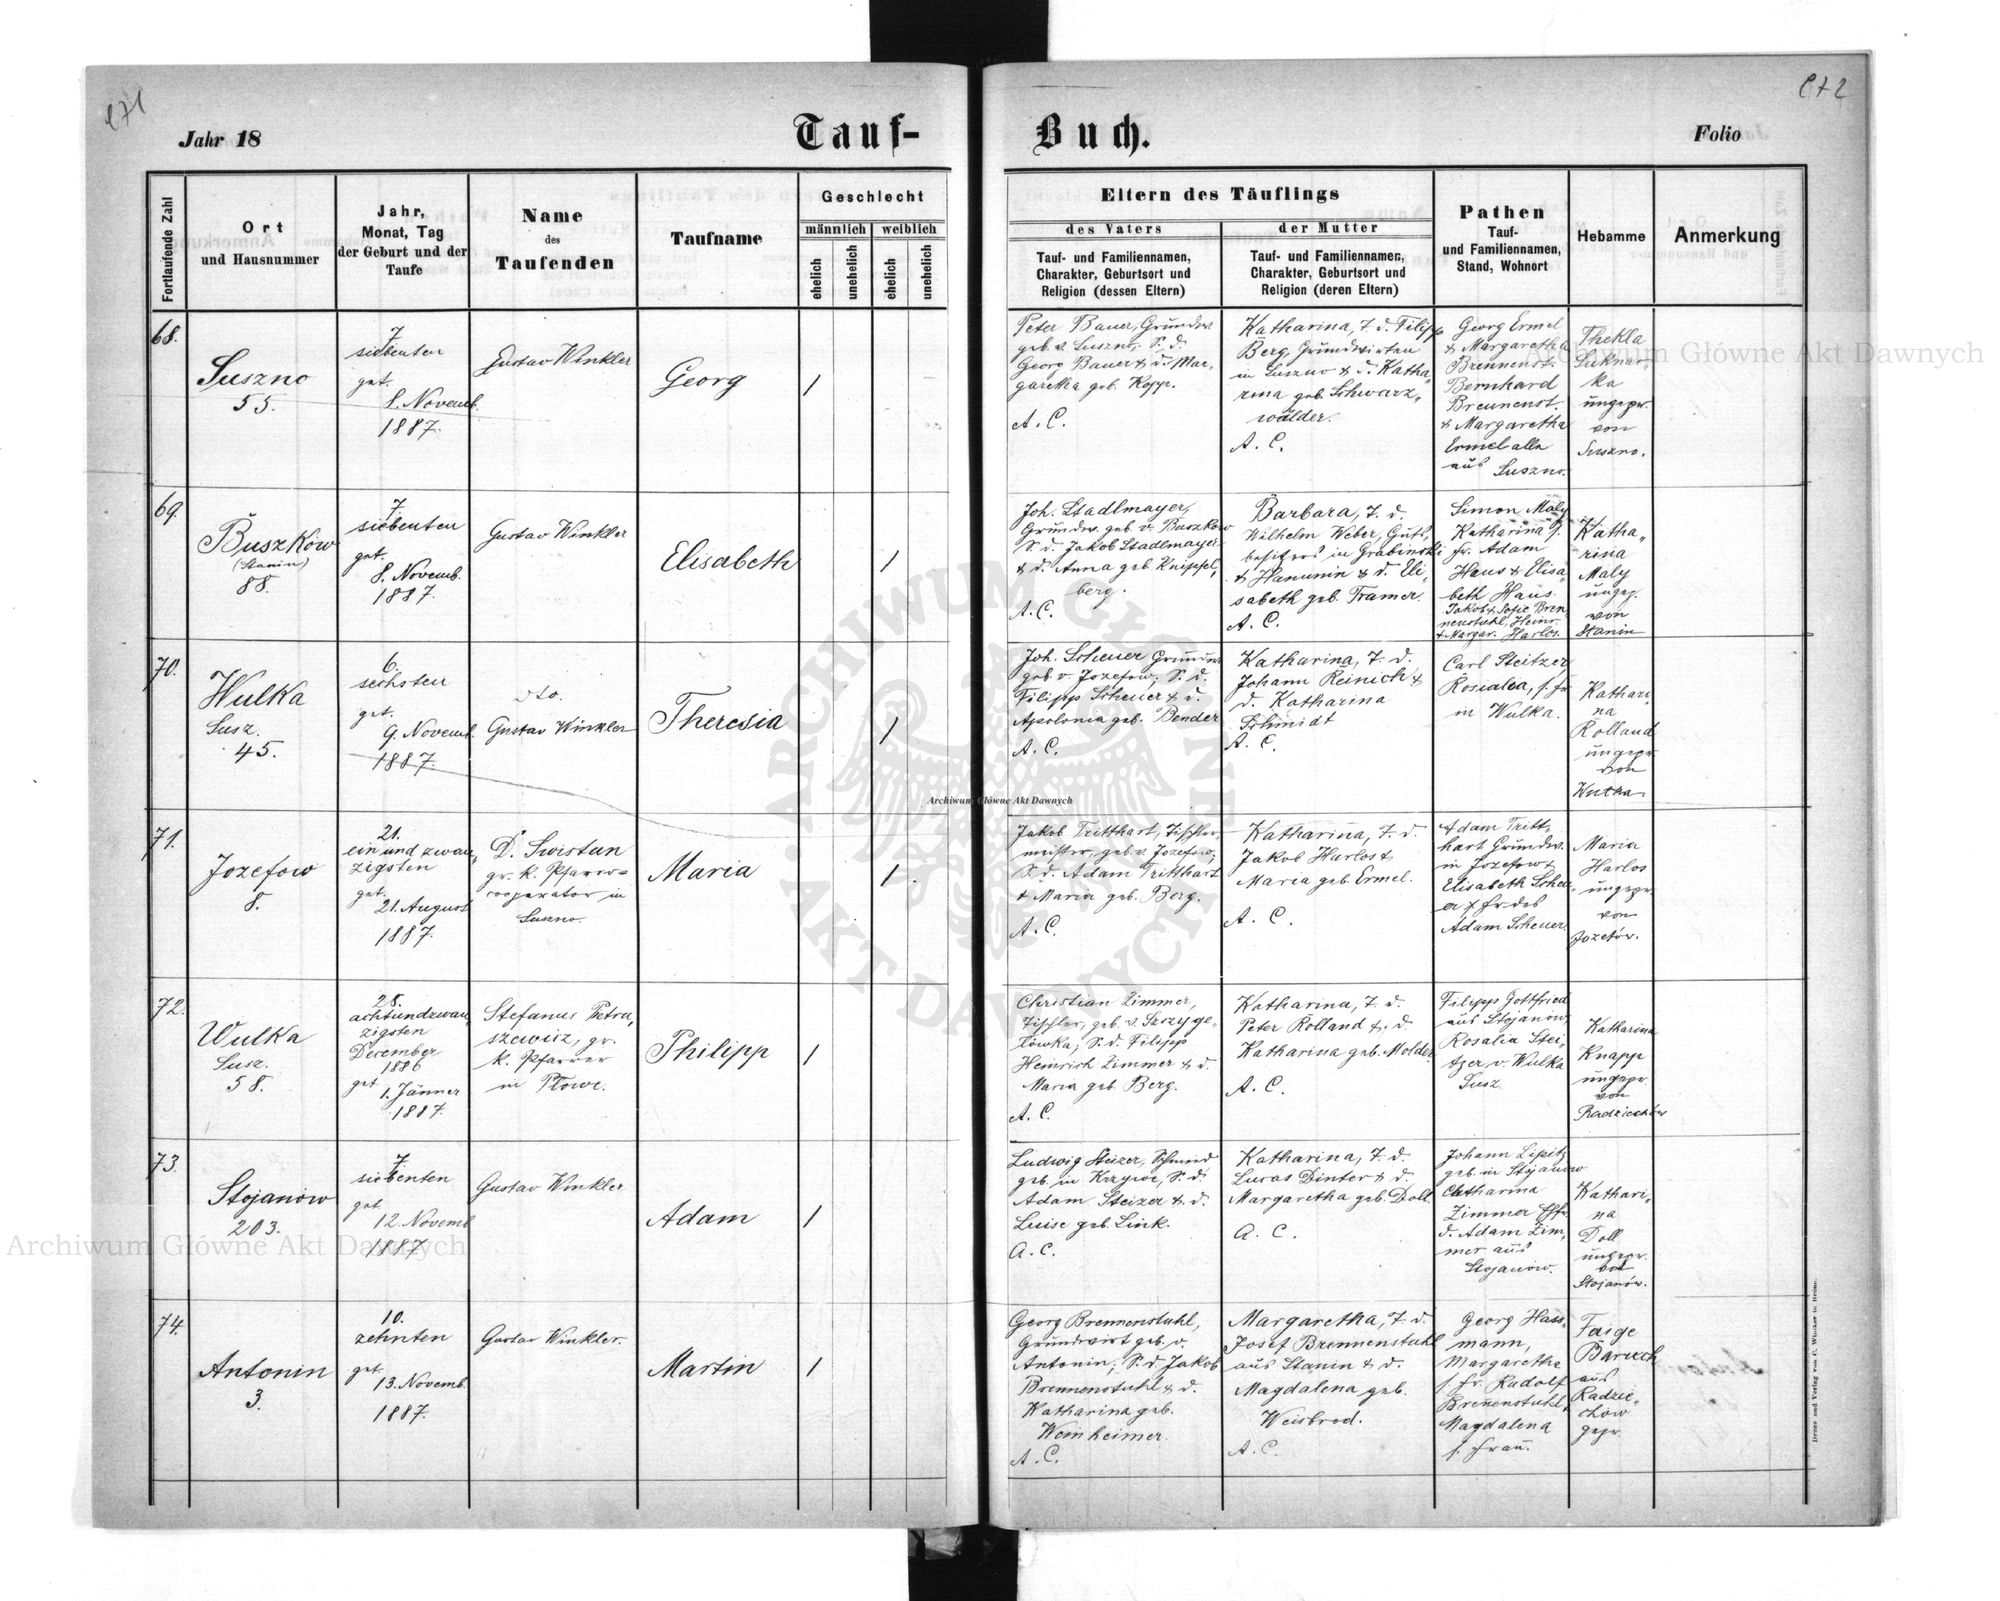 Jahr 18
Tauf-
Buch.
Folio
Fortlaufende Zahl
Ort
und Hausnummer
Jahr,
Monat, Tag
der Geburt und der
Taufe
Name
des
Taufenden
Taufname
Geschlecht
männlich
weiblich
ehelich
unehelich
ehelich
unehelich
Eltern des Täuflings
des Vaters
Tauf- und Familiennamen,
Charakter, Geburtsort und
Religion (dessen Eltern)
der Mutter
Tauf- und Familiennamen,
Charakter, Geburtsort und
Religion (deren Eltern)
Pathen
Tauf-
und Familiennamen,
Stand, Wohnort
Hebamme
Anmerkung
68.
Suszno
55.
7
siebenten
get.
8. Novemb.
1887.
Gustav Winkler
Georg
1
Peter Bauer, Grundw.
geb. v. Suszno, S. d.
Georg Bauer & d. Mar-
garetha geb. Kopp.
A. C.
Katharina, T. d. Filipp
Berg, Grundwirten
in Suszno & d. Katha-
rina geb. Schwarz-
wälder.
A. C.
Georg Ermel
& Margaretha
Brennenst.
Bernhard
Brennenst.
& Margaretha
Ermel alle
aus Suszno.
Thekla
ka
ungepr.
von
Suszno.
69.
Buszków
(Stanin)
88.
7.
siebenten
get.
8. Novemb.
1887.
Gustav Winkler
Elisabeth
1
Joh. Stadlmayer,
Grundw. geb. v. Buszkow
S. d. Jakob Stadlmayer
& d. Anna geb. Knippel-
berg.
A. C.
Barbara, T. d.
Wilhelm Weber, Guts-
besitzers in
& Hanunin & d. Eli-
sabeth geb. Tramer.
A. C.
Simon Maly
Katharina s.
fr. Adam
Haus & Elisa-
beth Haus.
Jakob & Sofie Bren
nenstuhl, Heinr.
& Margar. Harlos.
Katha-
rina
Maly
ungep.
von
Stanin
70.
Wulka
Susz.
45.
6.
sechsten
get.
9. Novemb.
1887.
dto.
Gustav Winkler
Theresia
1
Joh. Scheuer Grundw.
geb v. Jozefow, S. d.
Filipp Scheuer & d.
Apolonia geb. Bender
A. C.
Katharina, T. d.
Johann Reinich &
d. Katharina
Schmidt
A. C.
Carl Steitzer
Rosialea, s. fr.
in Wulka.
Kathari-
na
Rolland
ungepr.
von
Wulka.
71.
Jozefow
8.
21.
ein und zwan-
zigsten
get.
21. August
1887.
D. Swistun
gr. k. Pfarr-
cooperator in
Suszno.
Maria
1
Jakob Tritthart, Tischler
meister, geb. v. Jozefow,
S. d. Adam Tritthart
& Maria geb. Berg.
A. C.
Katharina, T. d.
Jakob Harlos &
Maria geb. Ermel.
A. C.
Adam Tritt-
hart Grundw.
in Jozefow &
Elisabeth Scheu-
er s. fr. des
Adam Scheuer.
Maria
Harlos
ungepr.
von
Jozefów.
72.
Wulka
Susz.
58.
28.
achtundzwan-
zigsten
December
1886
get.
1. Jänner
1887.
Stefanus Petru-
szewicz, gr.
k. Pfarrer
in Płowe.
Philipp
1
Christian Zimmer,
Tischler, geb. v. Szczyge-
lówka, S. d. Filipp
Heinrich Zimmer & d.
Maria geb. Berg.
A. C.
Katharina, T. d.
Peter Rolland & d.
Katharina geb. Molder
A. C.
Filipp Gottfried
aus Stojanow,
Rosalia Stei-
tzer, v. Wulka
Susz.
Katharina
Knapp
ungepr.
von
Radziechów
73.
Stojanów
203.
7.
siebenten
get.
12. Novemb
1887
Gustav Winkler
Adam
1
Ludwig Steizer, Schmied
geb. in Krzywe, S. d.
Adam Steizer & d.
Luise geb. Link.
A. C.
Katharina, T. d.
Lucas Dinter & d.
Margaretha geb. Doll
A. C.
Johann Lipitz
geb. in Stojanow
Catharina
Zimmer
d. Adam Zim-
mer aus
Stojanow.
Kathari-
na
Doll
ungepr.
von
Stojanów.
74.
Antonin
3.
10.
zehnten
get.
13. Novemb.
1887.
Gustav Winkler.
Martin
1
Georg Brennenstuhl,
Grundwirt geb. v.
Antonin, S. d. Jakob
Brennenstuhl & d.
Katharina geb.
Weinheimer.
A. C.
Margaretha, T. d.
Josef Brennenstuhl
aus Stanin & d.
Magdalena geb.
Weisbrod.
A. C.
Georg Hass-
mann,
Margaretha
s. fr. Rudolf
Brennenstuhl,
Magdalena
s. frau.
Faige
Baruch
aus
Radzie-
chow
gepr.
Archiwum Główne Akt Dawnych
Archiwum Główne Akt Dawnych
Archiwum Główne Akt Dawnych
ARCHIWUM GŁÓWNE
AKT DAWNYCH